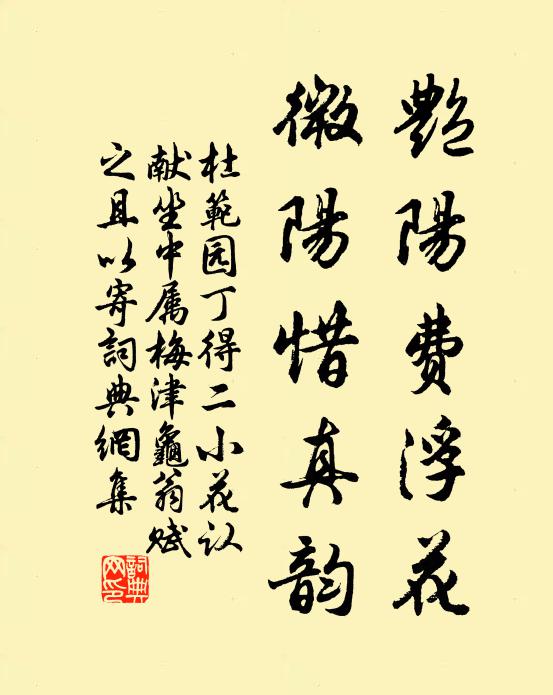 艷陽費浮花
微陽惜真韵
杜範园丁得二小花以
献坐中属梅津龜翁赋
之且以寄詞典網集
詞典网印